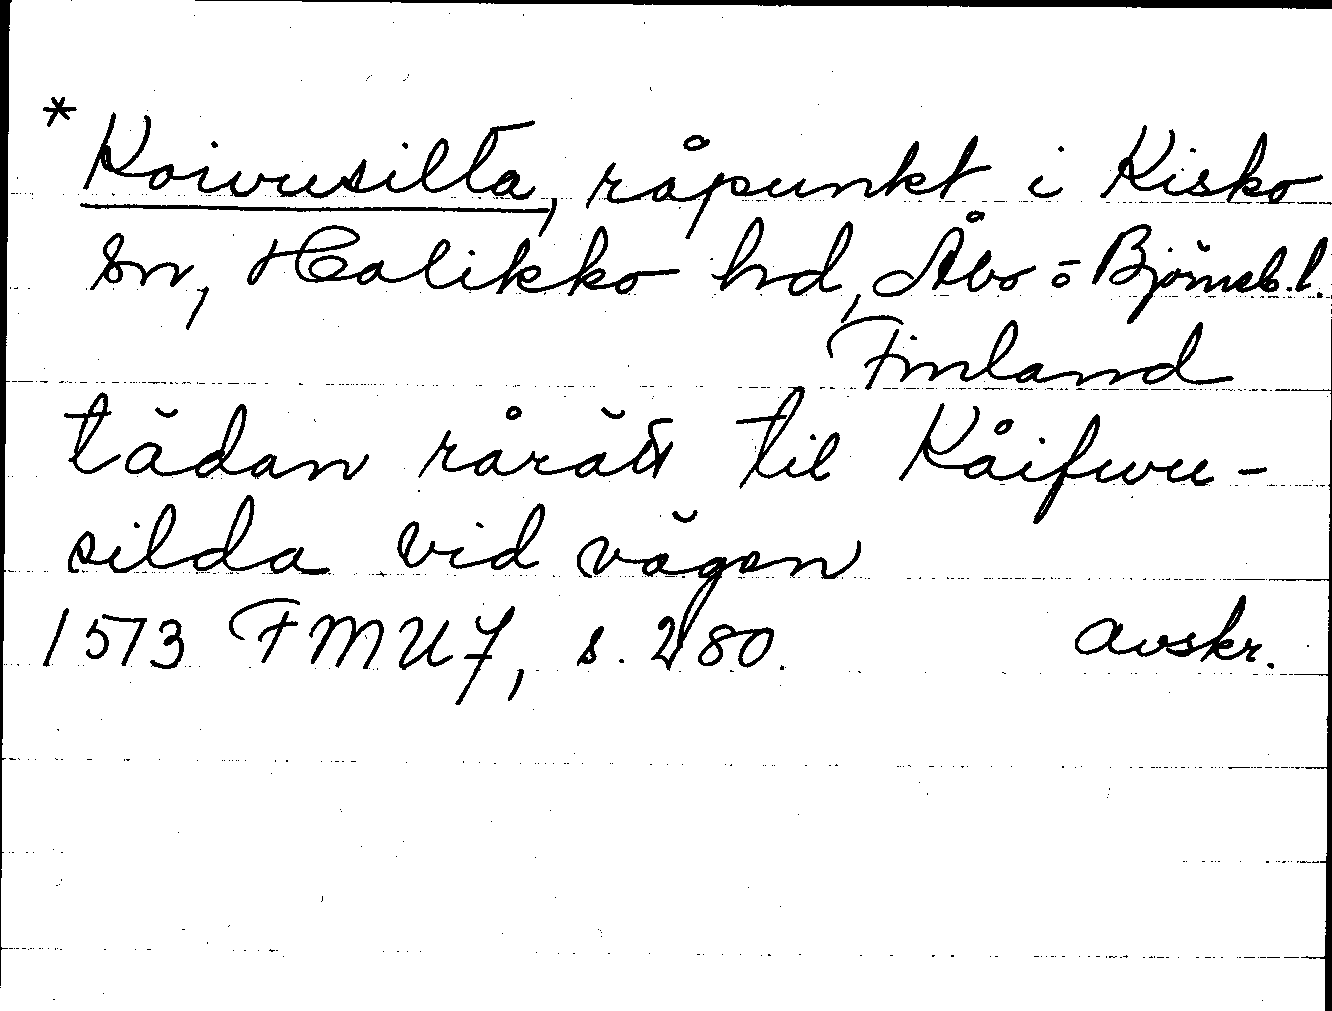 * Koivusilta, råpunkt i Kisko
sn, Halikko hd, Åbo o Björneb. l.
Finland
tädan rårätt til Kåifwu-
silda vid vägen
1573 FMU 7, s. 280. avskr.